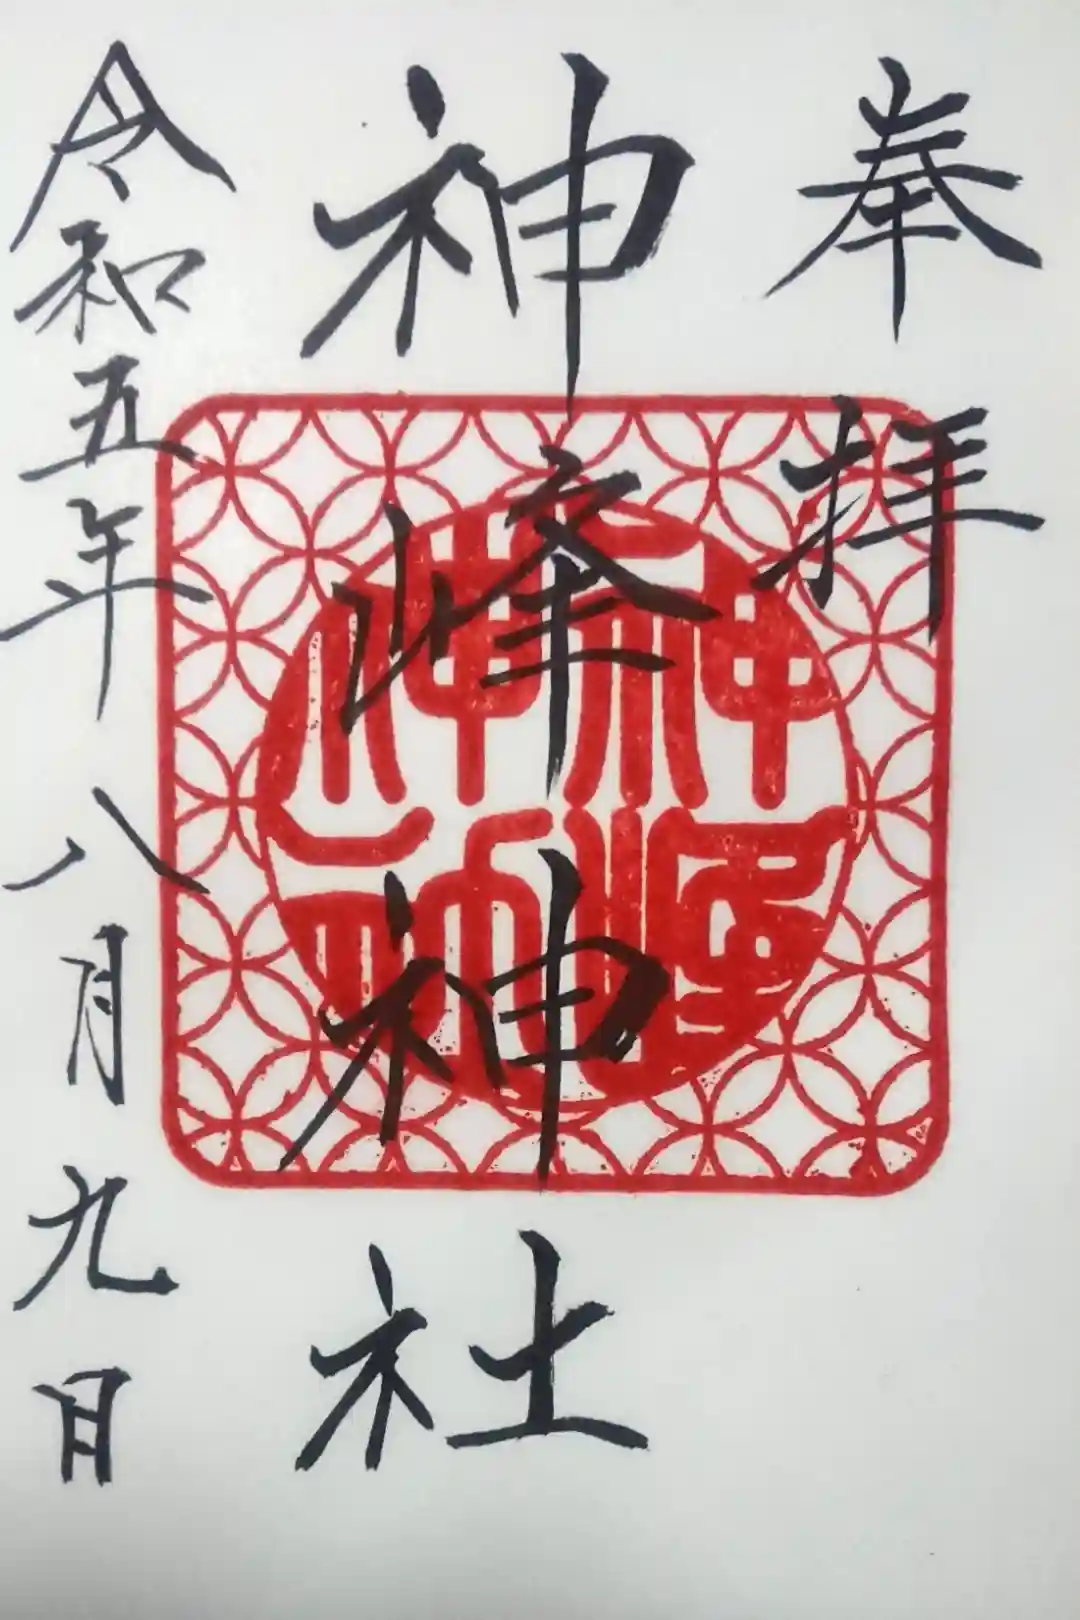 奉拝
神峰神社
令和五年八月九日